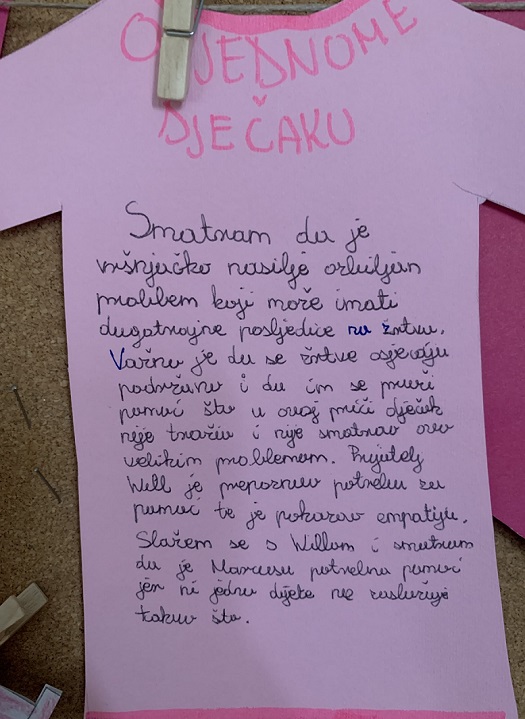 O JEDNOME
DJEČAKU
Smatram da je
vršnjačko nasilje ozbiljan
problem koji može imati
dugotrajne posljedice na žrtvu.
Važno je da se žrtve osjećaju
podržano i da im se pruži
pomoć što u ovoj priči dječak
nije tražio i nije smatrao ovo
velikim problemom. Prijatelj
Will je prepoznao potrebu za
pomoć te je pokazao empatiju.
Slažem se s Willom i smatram
da je Marcusu potrebna pomoć
jer ni jedno dijete ne zaslužuje
takvo što.